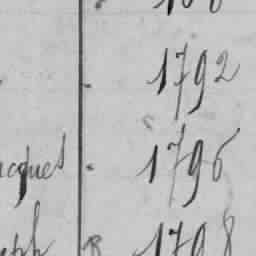 1792
acques 1796
eph 1798